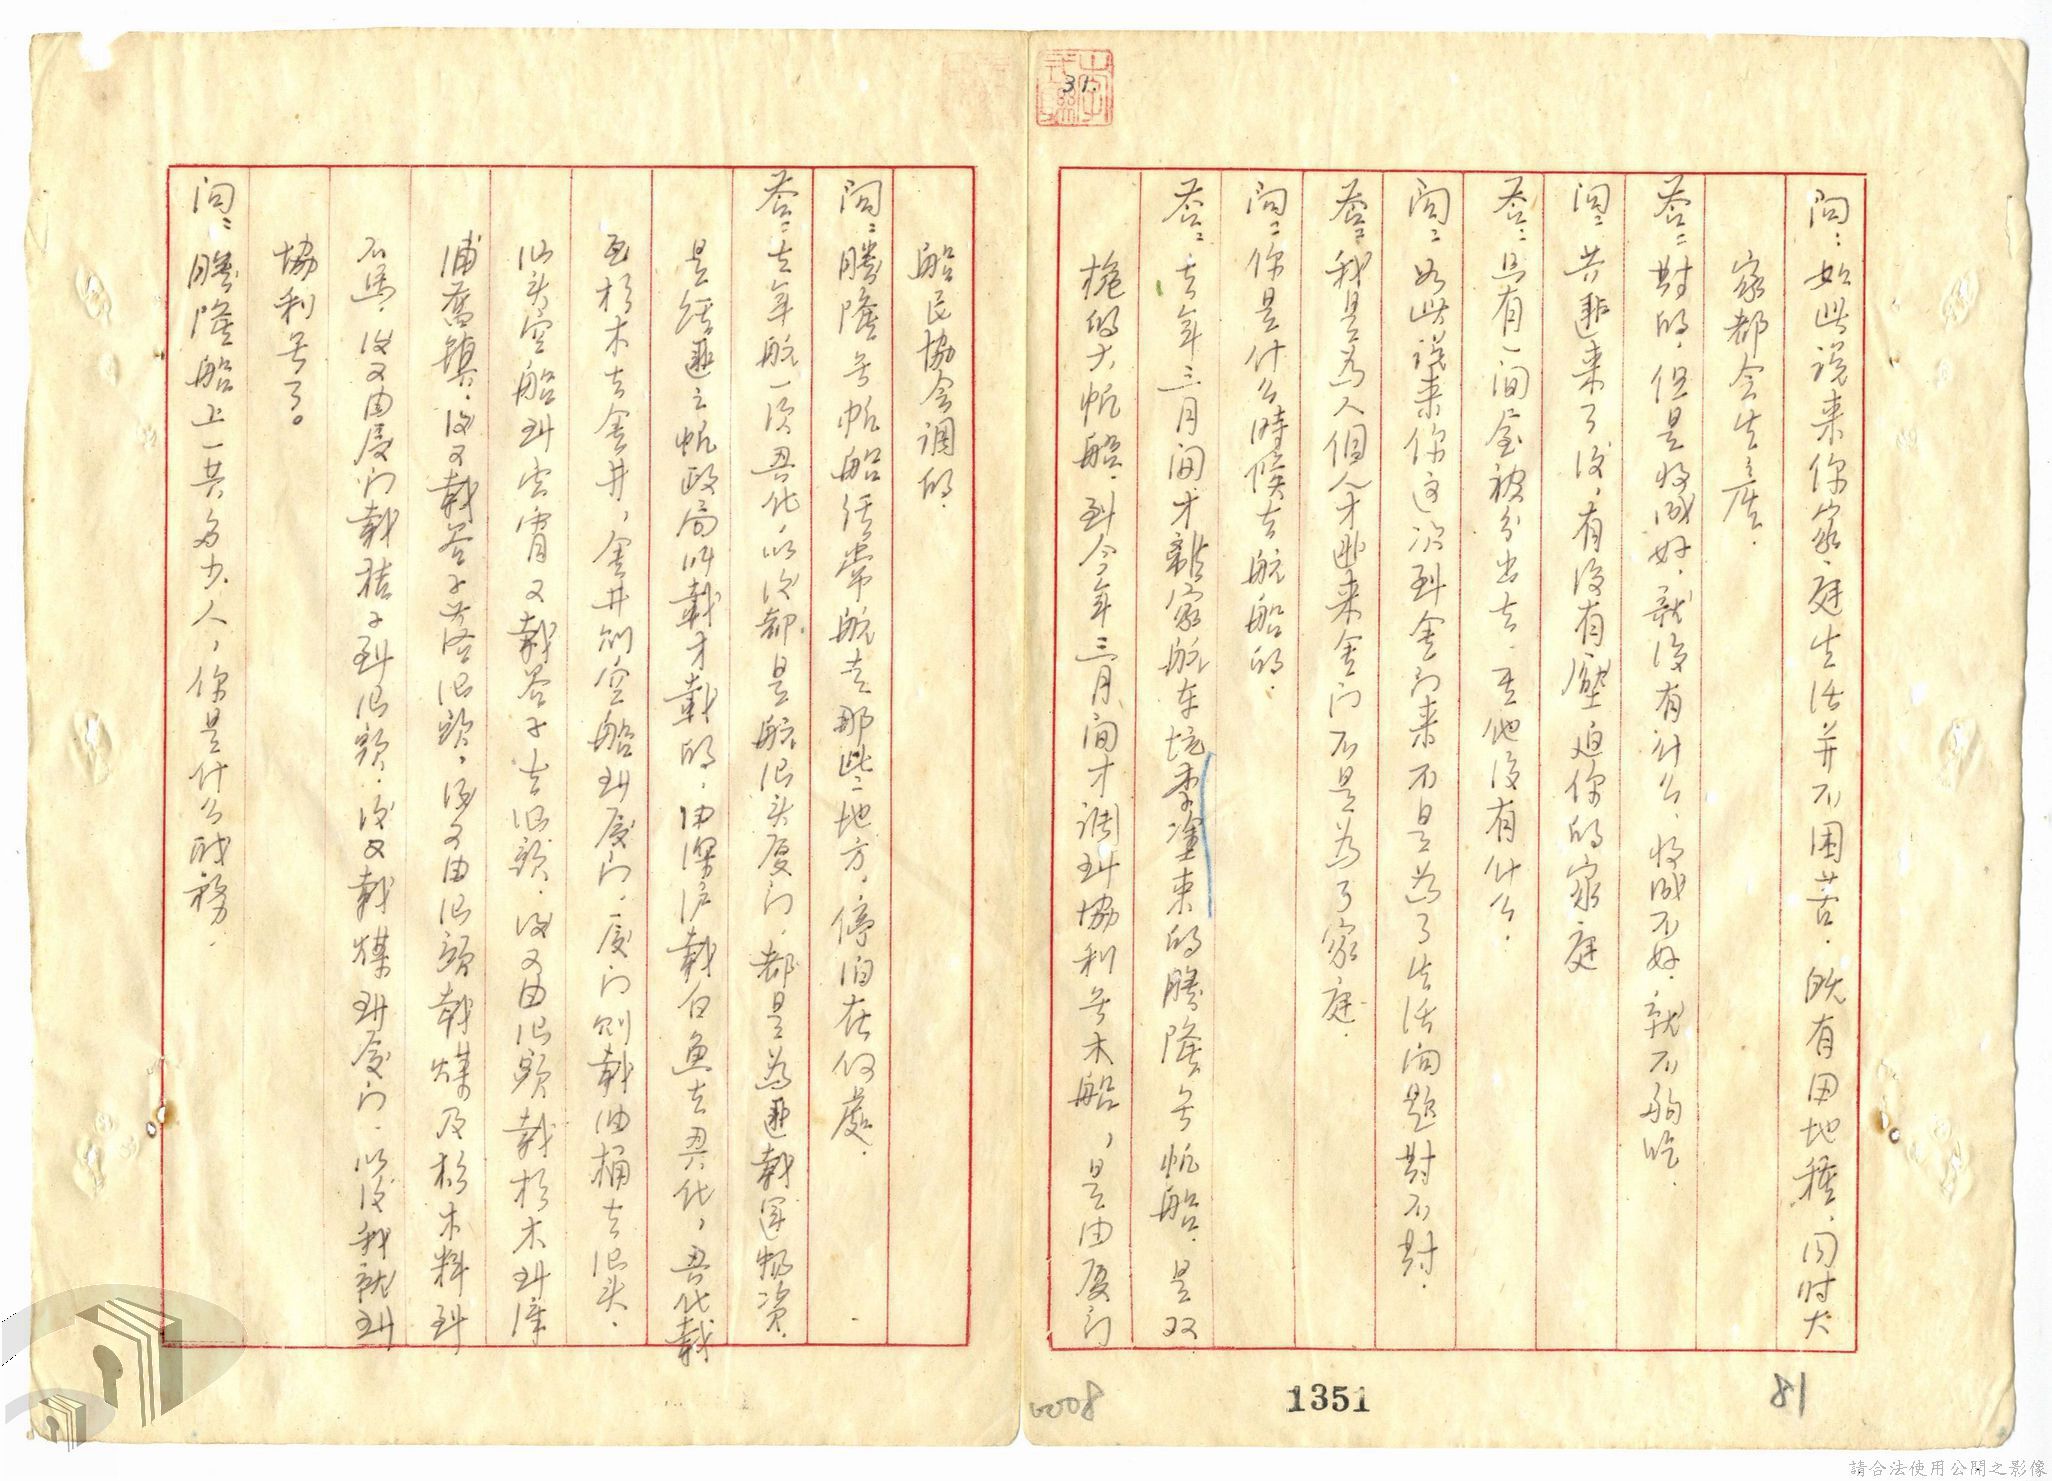 31.
問：如此说来你家庭生活并不困苦．既有田地種，同时大
家都会生產．
答：對的．但是收成好．就没有什么．收成不好．就不夠吃．
問：共匪来了後，有没有壓迫你的家庭
答：只有一间屋被分出去．其他没有什么．
問：如此说来你这次到金门来不是为了生活问题對不對．
答：我是為人個人才逃来金门不是為了家庭．
問：你是什么時候去航船的．
答：去年三月间才離家航東坑李塗来的勝隆号帆船．是双
桅的大帆船．到今年三月间才调到協利号木船，是由厦门
船民協会调的．
問：勝隆号帆船经常航去那些地方．停泊在何處．
答：去年航一次興化．以後都是航汕头厦门．都是為匪載運物资．
是经匪之帆政局叫載才載的．由深沪載白魚去興化，興化載
杉木去金井，金井則空船到厦门．厦门則載油桶去汕头．
汕头空船到雲霄又載谷子去汕頭．後又由汕頭載杉木到漳
浦舊鎮．後又載谷子去汕頭．後又由汕頭載煤及杉木料到
石馬．後又由厦门載桔子到汕頭．後又載煤到厦门．以後我就到
協利号了。
问：勝隆船上一共多少人，你是什么职務．
0008
1351
81
請合法使用公開之影像